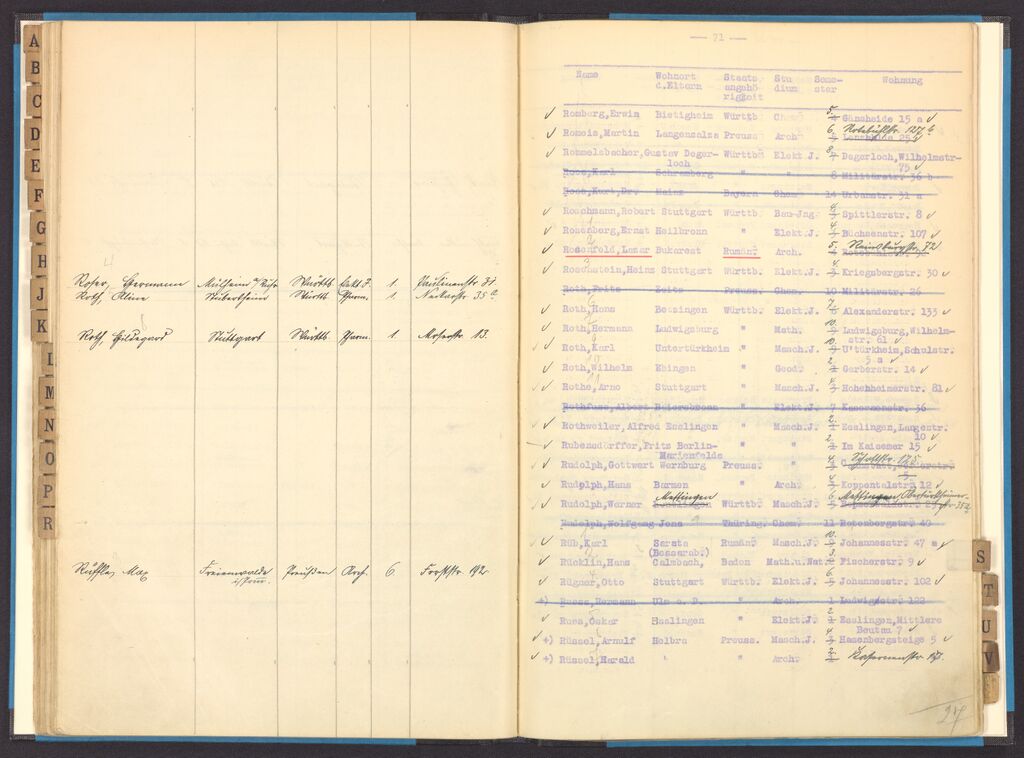 A
B
C
D
E
F
G
H
J
K
L
M
N
O
P
R
Roser, Hermann Württb. Elekt. J. 1. Paulinenstr. 31.
Roth, Württb. Pharm. 1. Neckarstr. 35a
Roth, Hildegard Stuttgart Württb. Pharm. 1. Moserstr. 13.
Max Freienwalde Preußen Arch. 6 Forststr. 192
i/Pom.
— 71 —
Name Wohnort Staats Stu Seme- Wohnung
d.Eltern angehö dium ster
rigkeit
Romberg,Erwin Bietigheim Württb Chem 5. Gänsheide 15 a
Romeis,Martin Langensalza Preuss. Arch. 6.
Rommelsbacher,Gustav Deger- Württbg Elekt J. 8. Degerloch,Wilhelmstr-
loch 75
Roos,Karl Schramberg " " 8 Militärstr. 36 b
Roos,Karl,Dr. Mainz Bayern Chem 14 Urbanstr. 31 a
Roschmann,Robert Stuttgart Württb. Bau-Jng. 4. Spittlerstr. 8
Rosenberg,Ernst Heilbronn " Elekt.J. 4. Büchsenstr. 107
Rosenfeld,Lazar Bukarest Rumän. Arch. 5. Reinsburgstr. 72
Rosenstein,Heinz Stuttgart Württb. Elekt.J. 4. Kriegsbergstr. 30
Roth,Fritz Zeitz Preuss. Chem. 10 Militärstr. 26
Roth,Hans Betzingen Württb Elekt.J. 7. Alexanderstr. 133
Roth,Hermann Ludwigsburg " Math. 10. Ludwigsburg,Wilhelm-
str. 61
Roth,Karl Untertürkheim " Masch.J. 10. U'türkheim,Schulstr.
5 a
Roth,Wilhelm Ebingen " Geod. 2. Gerberstr. 14
Rothe,Arno Stuttgart " Masch.J. 4. Hohenheimerstr. 81
Rothfuss,Albert Baiersbronn " Elekt.J. 7 Kasernenstr. 36
Rothweiler,Alfred Esslingen " Masch.J. 2. Esslingen,Langestr.
10
Rubensdörffer,Fritz Berlin- " " 2. Im Kaisemer 15
Marienfelde
Rudolph,Gottwert Wernburg Preuss. " 4. Schottstr. 175
Rudolph,Hans Barmen " Arch. 4. Koppentalstr. 12
Mettingen
Rudolph,Werner Württb Masch.J. 6 Mettingen,
Rudolph,Wolfgang Jena Thüring. Chem. 11 Rotenbergstr. 40
Rüb,Karl Sarata Rumän. Masch.J. 10. Johannesstr. 47 a
(Bessarab.)
Rücklin,Hans Calmbach, Baden Math.u.Nat. 3. Fischerstr. 9
Rügner,Otto Stuttgart Württb Elekt.J. 6. Johannesstr. 102
+) Ruess,Hermann Ulm a. D. " Arch. 1 Ludwigstr. 122
Rues,Oskar Esslingen " Elekt.J. 2 Esslingen,Mittlere
Beutau 7
+) Rüssel,Arnulf Helbra Preuss. Masch.J. 4 Hasenbergsteige 5
+) Rüssel,Harald " " Arch. 2. Kasernenstr.
S
T
U
V
27